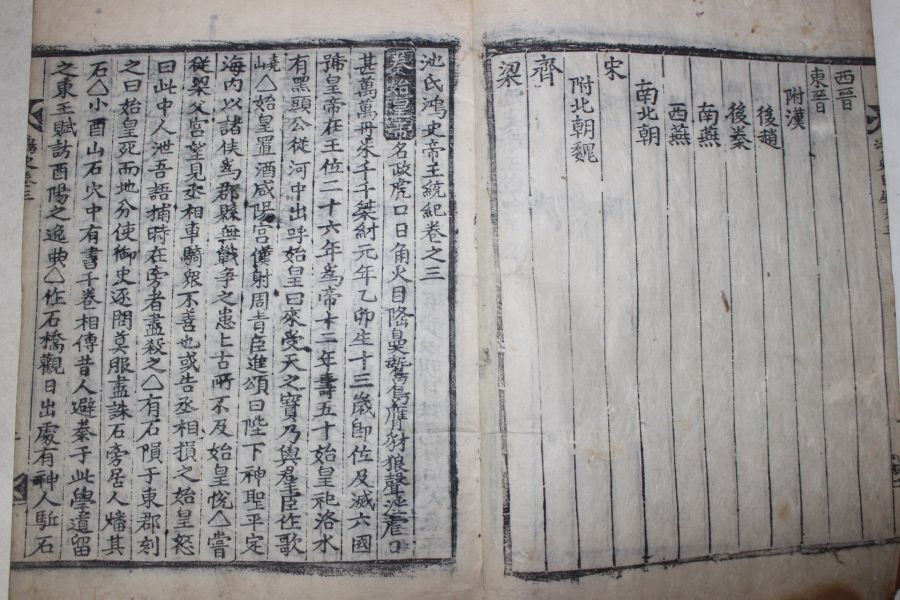 西晉
東晉
附漢
後趙
後秦
南燕
西燕
南北朝
宋
附北朝魏
齊
梁
池氏鴻史帝王統紀卷之三
秦始皇帝 名政虎口日角火目隆鼻鷙鳥膺豺狼聲
甚萬萬 千千桀紂元年乙卯生十三歲即位及滅六國
稱皇帝在王位二十六年爲帝十二年壽五十始皇祀洛水
有黑頭公從河中出呼始皇曰來受天之寶乃與羣臣作歌
△始皇置酒咸陽宮僕射周青臣進頌曰陛下神聖平定
海内以諸侯爲郡縣無戰爭之患上古所不及始皇悅△嘗
從梁父宮望見丞相車騎衆不善也或告丞相損之始皇怒
曰此中人泄吾語捕時在旁者盡殺之△有石隕于東郡刻
之曰始皇死而地分使御史逐問莫服盡誅石旁居人燔其
石△小酉山石穴中有書千卷相傳昔人避秦于此學遺留
之東王賦訪酉陽之逸典△作石橋觀日出處有神人駈石